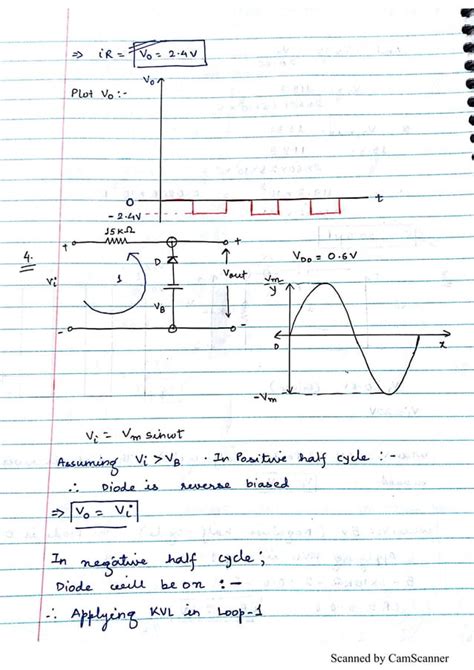 ⇒ iR = V₀ = 2.4V
Plot V₀ :-
V₀
0
t
-2.4V
15kΩ
4.
+
+
Vi
1
D
VB
Vout
-
-
VD0 = 0.6V
Vm
y
0
x
-Vm
Vi = Vm sinωt
Assuming Vi > VB . In Positive half cycle :-
∴ Diode is reverse biased
⇒ V₀ = Vi
In negative half cycle ;
Diode will be on :-
∴ Applying KVL in Loop-1
Scanned by CamScanner